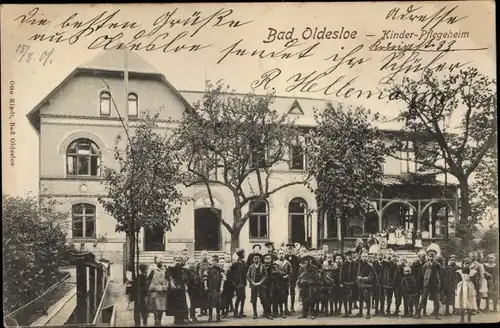 Die besten Grüße
Adresse
Bad Oldesloe – Kinder-Pflegeheim
15/8. 07.
aus Oldesloe sendet Ihr Schüler
R. Hellmann
Otto Kindt, Bad Oldesloe